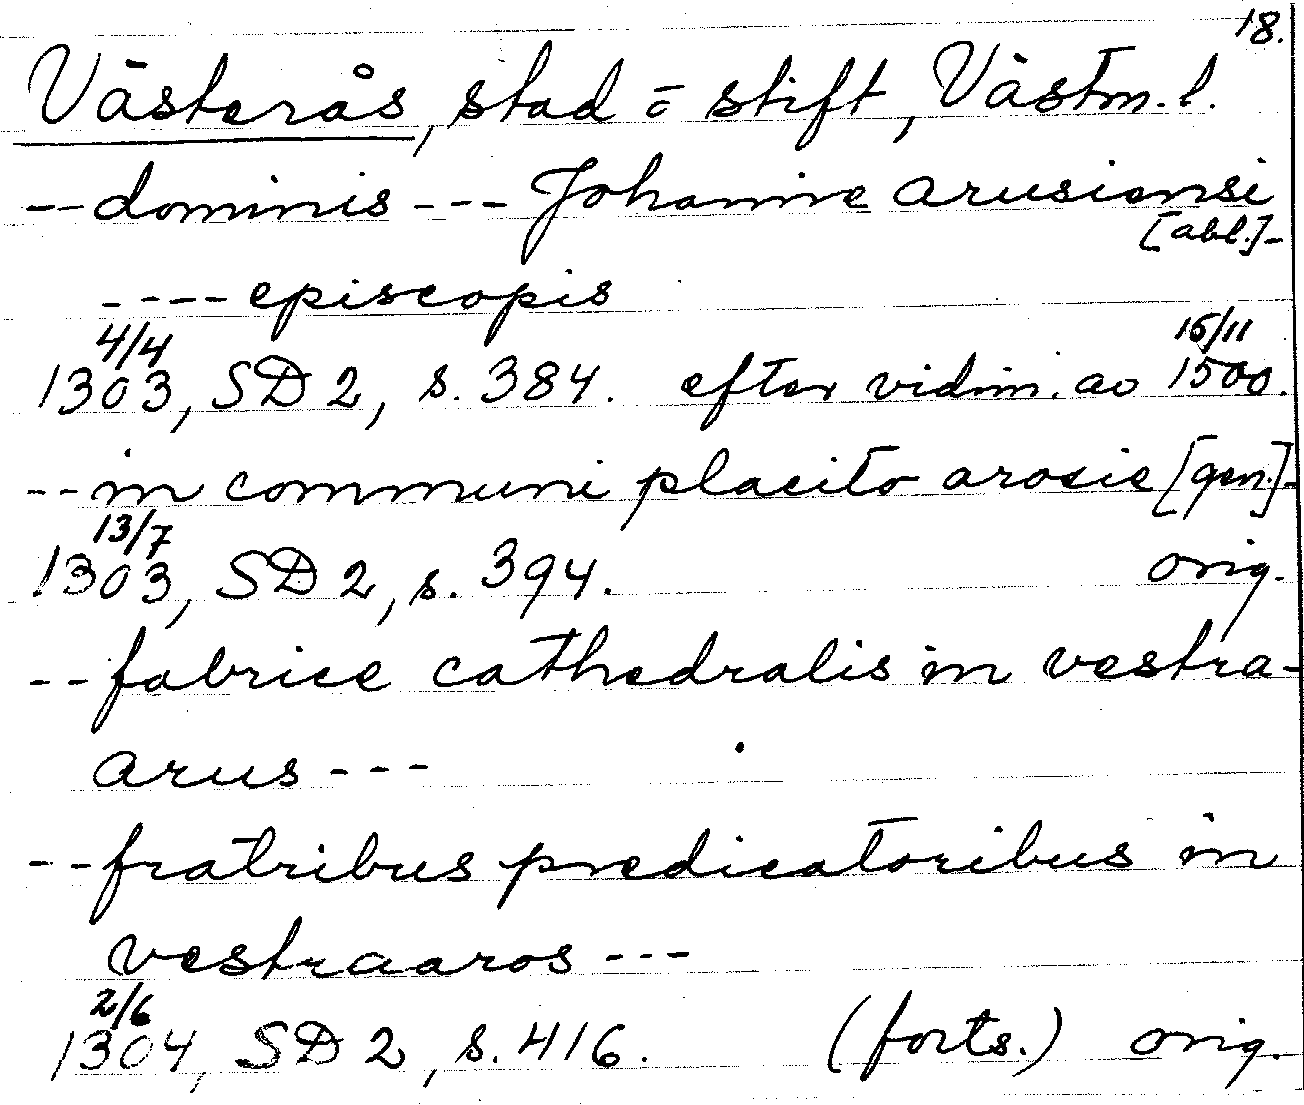 18.
Västerås, stad o stift, Västm. l.
-- dominis --- Johanne arusiensi
[abl.]-
---- episcopis
4/4 15/11
1303, SD 2, s. 384. efter vidim. av 1500.
-- in communi placito arosie [gen.]-
13/7
1303, SD 2, s. 394. orig.
-- fabrice cathedralis in vestra-
arus ---
-- fratribus predicatoribus in
vestraaros ---
2/6
1304, SD 2, s. 416. (forts.) orig.